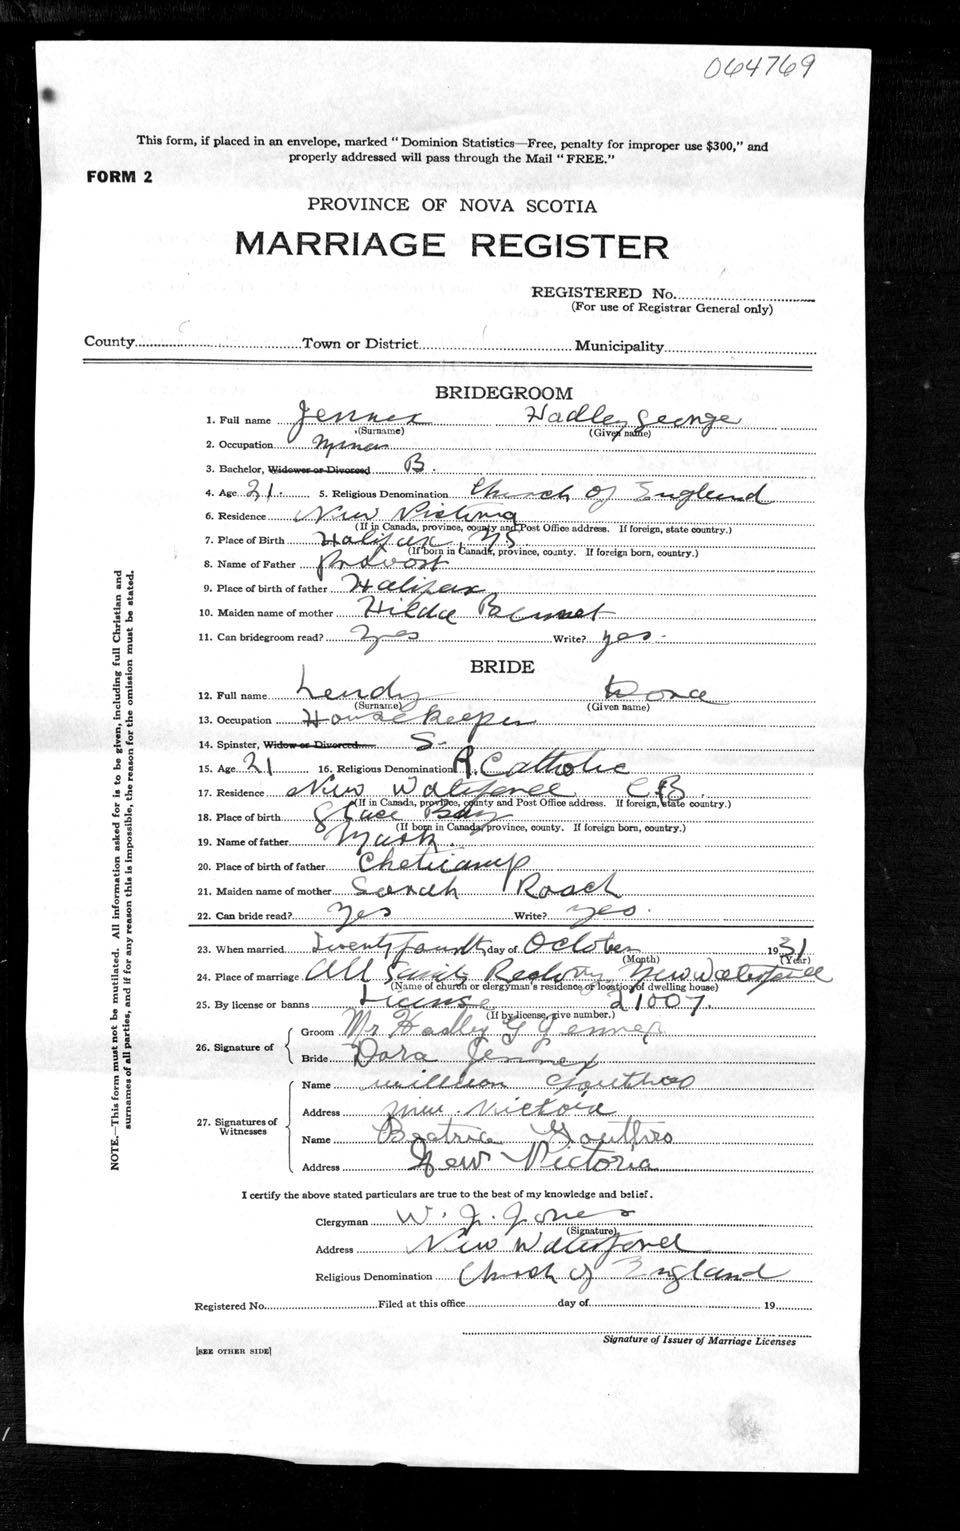 064769
This form, if placed in an envelope, marked "Dominion Statistics—Free, penalty for improper use $300," and
properly addressed will pass through the Mail "FREE."
FORM 2
PROVINCE OF NOVA SCOTIA
MARRIAGE REGISTER
REGISTERED No.
(For use of Registrar General only)
County Town or District Municipality
NOTE.—This form must not be mutilated. All information asked for is to be given, including full Christian and
surnames of all parties, and if for any reason this is impossible, the reason for the omission must be stated.
BRIDEGROOM
1. Full name Jennex Hadley George
(Surname) (Given name)
2. Occupation Miner
3. Bachelor, Widower or Divorced B.
4. Age 21 5. Religious Denomination Church of England
6. Residence New Victoria
(If in Canada, province, county and Post Office address. If foreign, state country.)
7. Place of Birth Halifax NS
(If born in Canada, province, county. If foreign born, country.)
8. Name of Father
9. Place of birth of father Halifax
10. Maiden name of mother Hilda
11. Can bridegroom read? Yes Write? yes.
BRIDE
12. Full name Lendy Dora
(Surname) (Given name)
13. Occupation Housekeeper
14. Spinster, Widow or Divorced S.
15. Age 21 16. Religious Denomination R. Catholic
17. Residence New Waterford CB.
(If in Canada, province, county and Post Office address. If foreign, state country.)
18. Place of birth Glace Bay
(If born in Canada, province, county. If foreign born, country.)
19. Name of father Mark.
20. Place of birth of father Cheticamp
21. Maiden name of mother Sarah Roach
22. Can bride read? Yes Write? yes.
23. When married Twenty fourth day of October 1931
(Month) (Year)
24. Place of marriage All Saints Rectory New Waterford
(Name of church or clergyman's residence or location of dwelling house)
25. By license or banns License 21007.
(If by license, give number.)
26. Signature of
Groom Mr Hadley G Jennex
Bride Dora Jennex
27. Signatures of
Witnesses
Name William Gouthro
Address New Victoria
Name Beatrice Gouthro
Address New Victoria
I certify the above stated particulars are true to the best of my knowledge and belief.
Clergyman W. J. Jones
(Signature)
Address New Waterford
Religious Denomination Church of England
Registered No. Filed at this office day of 19
Signature of Issuer of Marriage Licenses
[SEE OTHER SIDE]